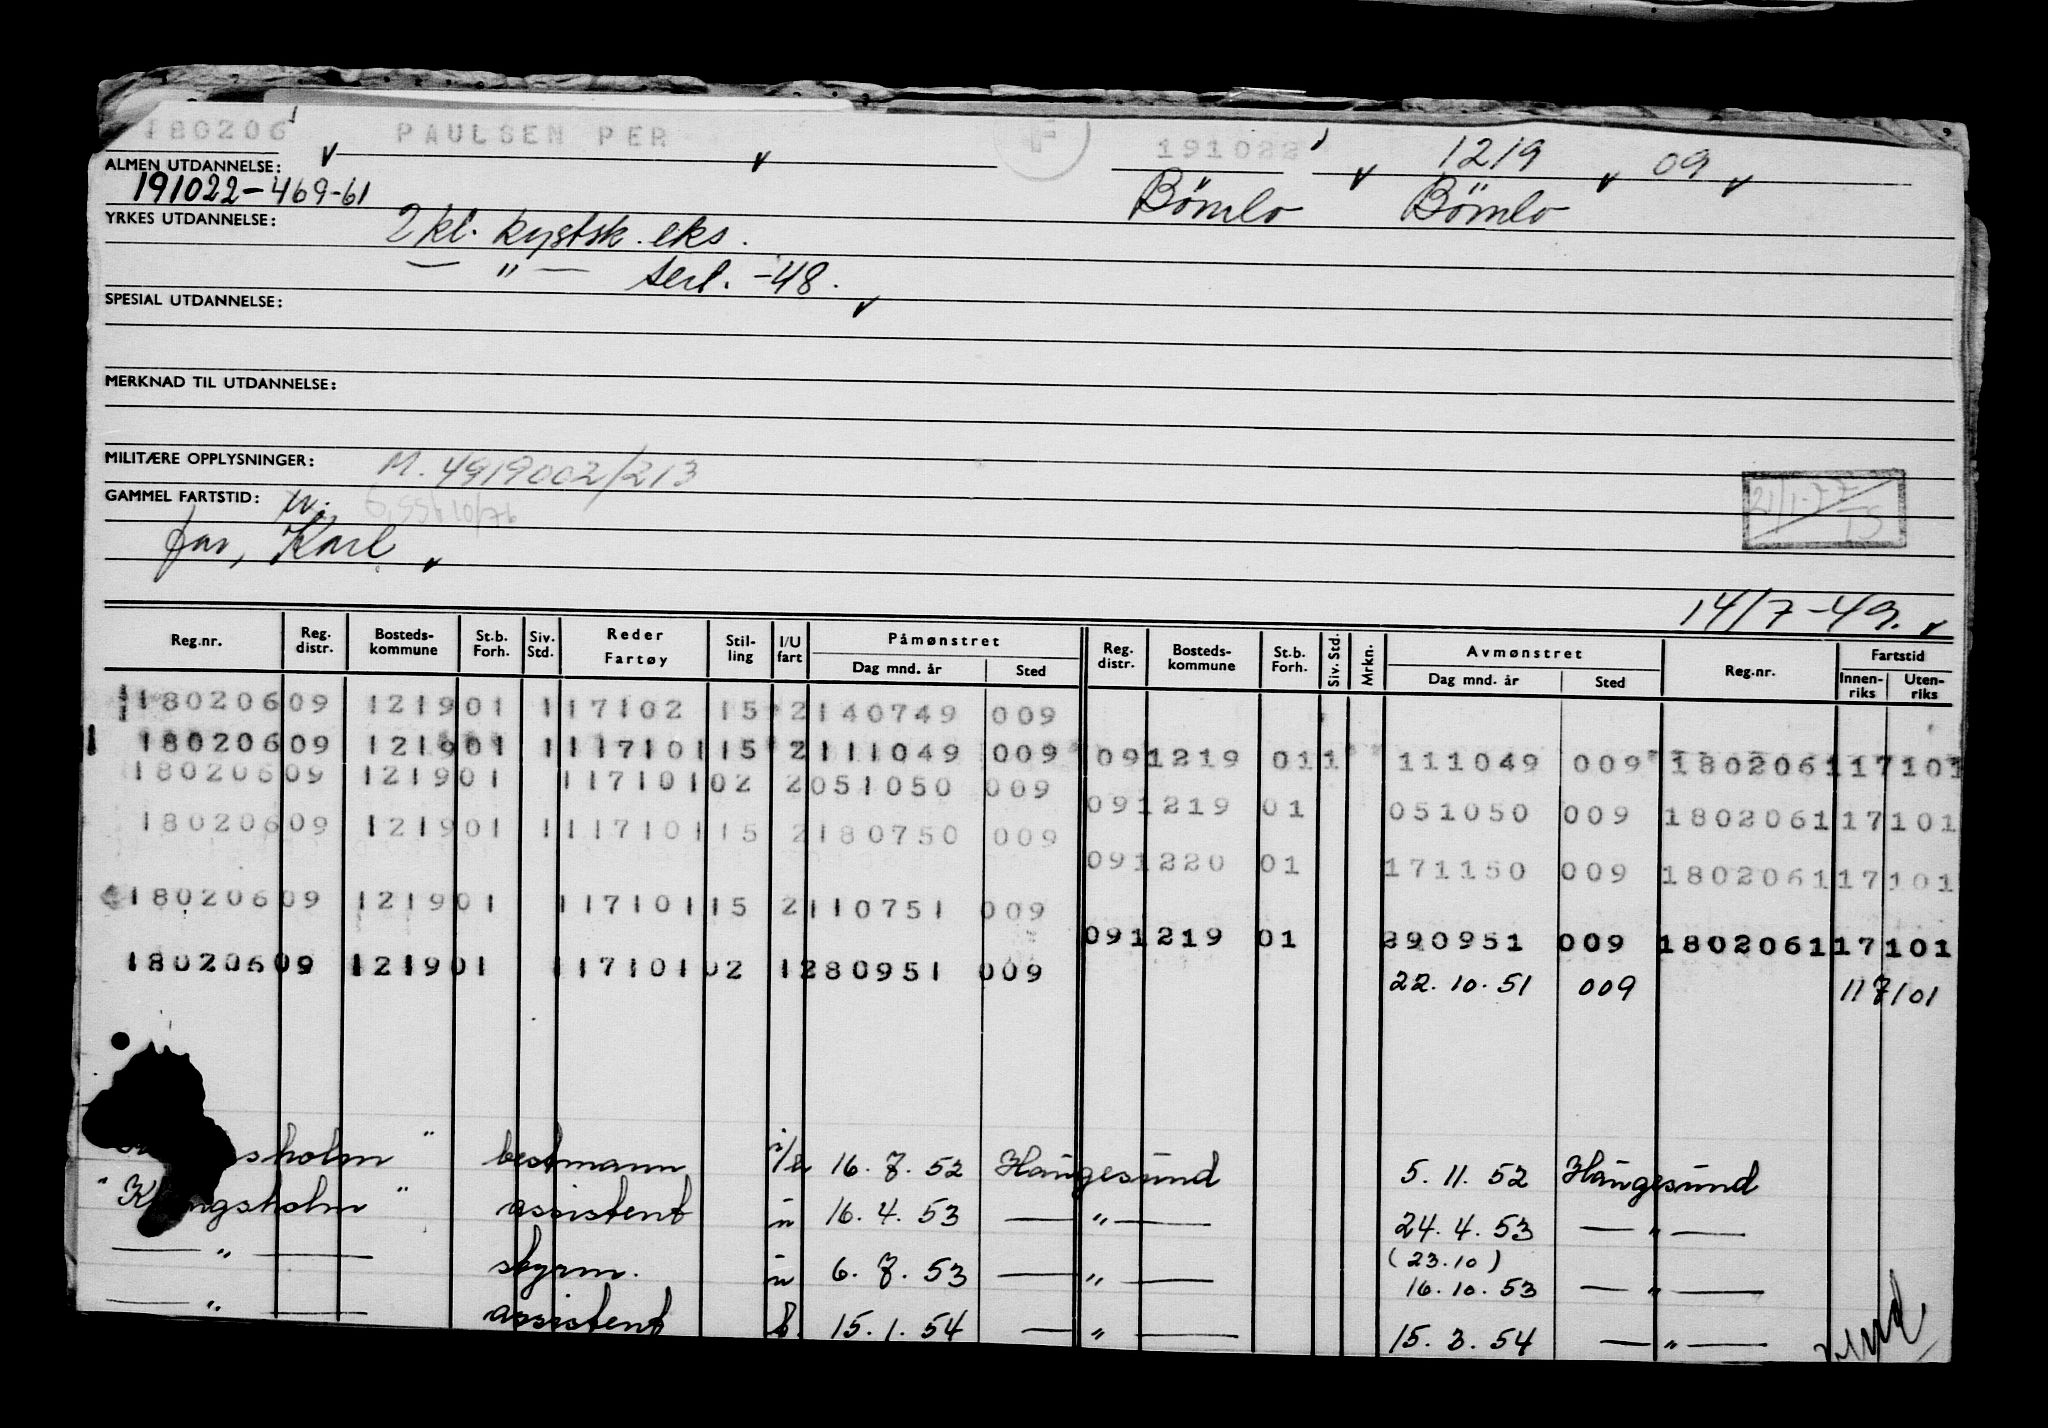 180206 PAULSEN PER 191022 1219 09
ALMEN UTDANNELSE: 191022-469-61 Bömlo Bömlo
YRKES UTDANNELSE: 2 kl. kystsk. eks.
— " — sert. -48.
SPESIAL UTDANNELSE:
MERKNAD TIL UTDANNELSE:
MILITÆRE OPPLYSNINGER: M. 4919002/213
GAMMEL FARTSTID:
far, Karl
14/7-49.
Reg.nr. Reg. distr. Bosteds-kommune St.b. Forh. Siv. Std. Reder Fartøy Stil-ling I/U fart Påmønstret Dag mnd. år Sted Reg. distr. Bosteds-kommune St.b. Forh. Siv. Std. Mrkn. Avmønstret Dag mnd. år Sted Reg.nr. Fartstid Innen-riks Uten-riks
180206 09 1219 01 1 17102 15 2 140749 009
180206 09 1219 01 1 117101 15 2 111049 009 09 1219 01 1 111049 009 180206 1 117101
180206 09 1219 01 117101 02 2 051050 009
09 1219 01 051050 009 180206 117101
180206 09 1219 01 1 117101 15 2 180750 009
09 1220 01 171150 009 180206 117101
180206 09 1219 01 117101 15 2 110751 009
09 1219 01 290951 009 180206 117101
180206 09 1219 01 117101 02 1 280951 009
22.10.51 009 117101
sholm " bestmann 16.7.52 Haugesund 5.11.52 Haugesund
" Klongsholm " assistent u 16.4.53 — " — 24.4.53 — " —
— " — styrm. u 6.7.53 — " — (23.10) 16.10.53 — " —
— " — assistent 15.1.54 — " — 15.3.54 — " —